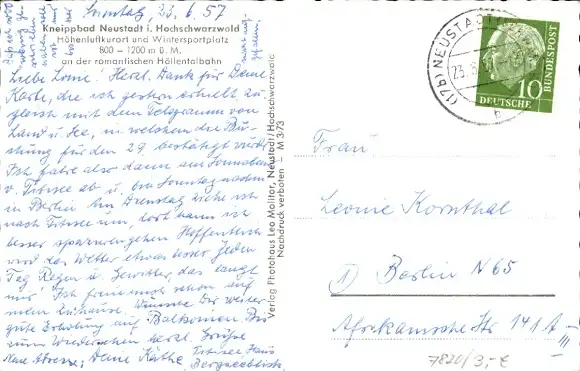 Sonntag, 23.6.57
Kneippbad Neustadt i. Hochschwarzwald
Höhenluftkurort und Wintersportplatz
800 – 1200 m ü. M.
an der romantischen Höllentalbahn
Liebe Lonie. Herzl. Dank für Deine
Karte, die ich gestern erhielt zu-
gleich mit dem Telegramm von
Land u. See, in welchem die Bu-
chung für den 29. bestätigt wird.
Ich fahre also dann am Sonnabend
v. Titisee ab u. bin Sonntag
in Berlin. Am Dienstag ziehe ich
nach Titisee um, dort kann ich
besser spazierengehen. Hoffentlich
wird das Wetter etwas besser. Jeden
Tag Regen u. Gewitter, das langt
mir! Ich freue mich schon auf
mein Zuhause. Wünsche Dir weiter
gute Erholung auf Balkonien. Bis
zum Wiedersehen herzl. Grüße
Neue Adresse: Deine Käthe. Titisee Haus
Bergseeblick.
Verlag Photohaus Leo Molitor, Neustadt/Hochschwarzwald
Nachdruck verboten – M 3/73
(17b) NEUSTADT
23.6.
b
10
DEUTSCHE BUNDESPOST
Frau
Leonie Kornthal
1) Berlin N 65
Afrikanische Str 141 A
III
7820/3,-€